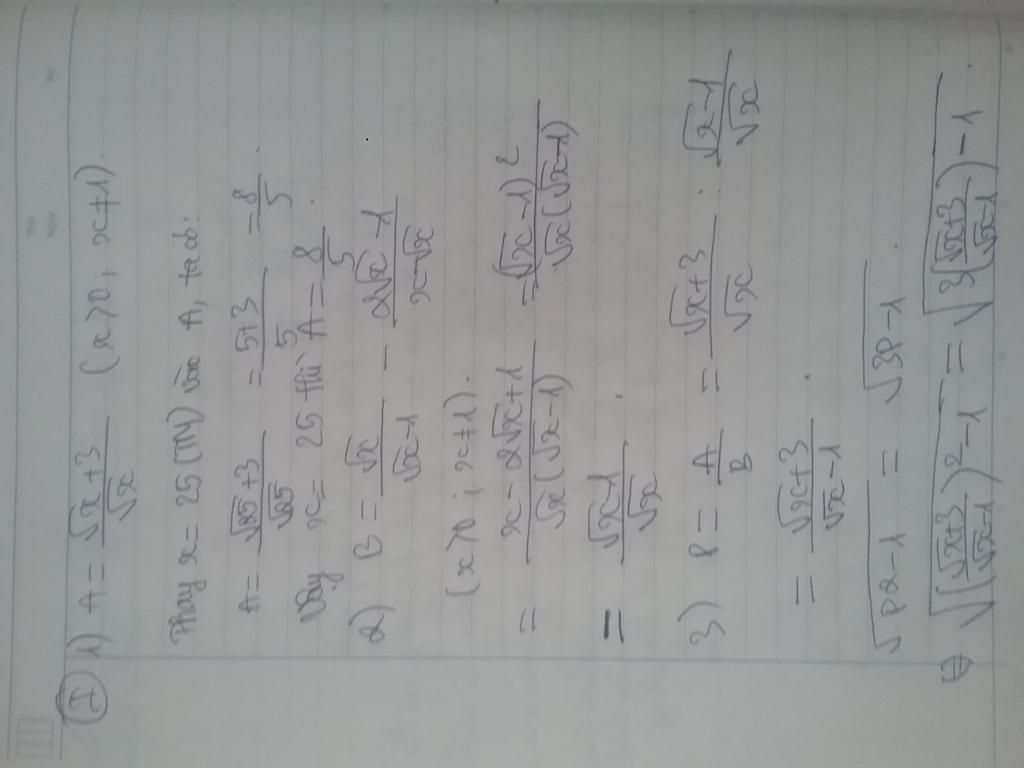 I 1) A = (√x + 3)/√x (x > 0 ; x ≠ 1).
Thay x = 25 (TM) vào A, ta có:
A = (√25 + 3)/√25 = (5+3)/5 = 8/5.
Vậy x = 25 thì A = 8/5.
2) B = √x/(√x-1) - (2√x - 1)/(x-√x)
(x > 0 ; x ≠ 1).
= (x - 2√x + 1)/(√x(√x-1)) = (√x-1)²/(√x(√x-1))
= (√x-1)/√x.
3) P = A/B = (√x+3)/√x : (√x-1)/√x
= (√x+3)/(√x-1).
√(P2-1) = √(3P-1).
⇔ √(((√x+3)/(√x-1))²-1) = √(3((√x+3)/(√x-1))-1).